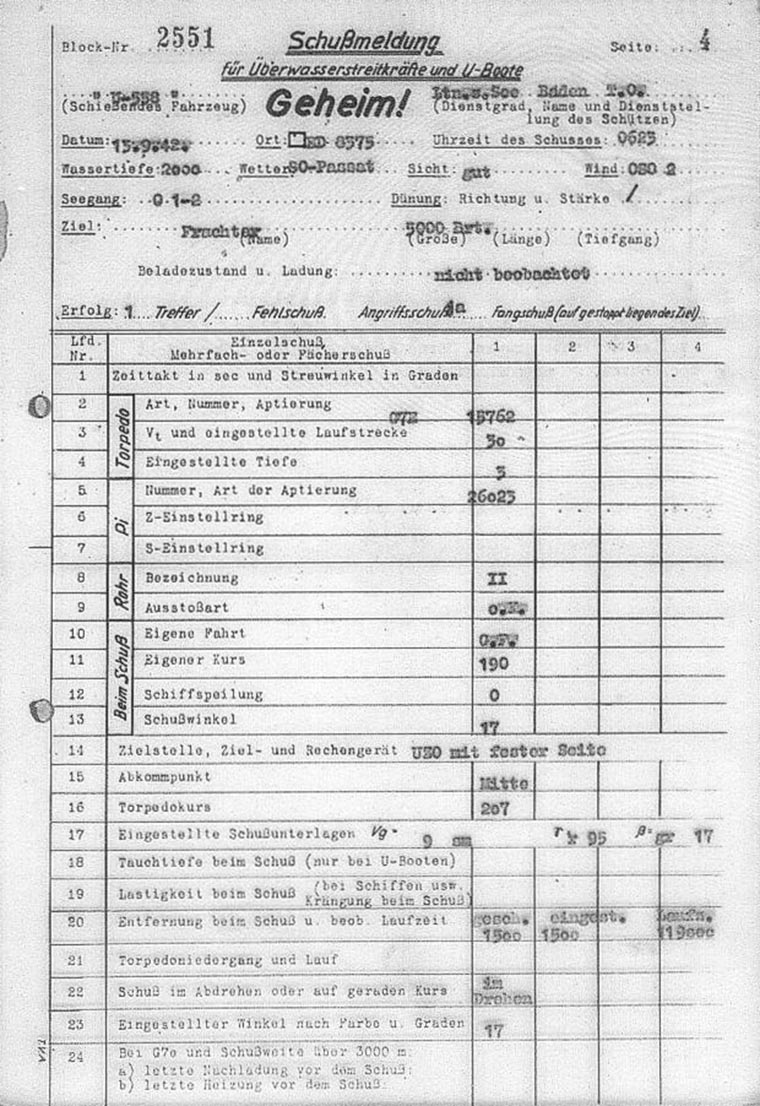 Block-Nr 2551 Schußmeldung Seite: 4
für Überwasserstreitkräfte und U-Boote
"U-558" Geheim! Ltn.z.See Baden T.O.
(Schießendes Fahrzeug) (Dienstgrad, Name und Dienststel-
lung des Schützen)
Datum: 13.9.42. Ort: ED 8375 Uhrzeit des Schusses: 0623
Wassertiefe: 2000 Wetter SO-Passat Sicht: gut Wind: OSO 2
Seegang: 0 1-2 Dünung: Richtung u. Stärke /
Ziel: Frachter 5000 Brt.
(Name) (Größe) (Länge) (Tiefgang)
Beladezustand u. Ladung: nicht beobachtet
Erfolg: 1 Treffer / Fehlschuß. Angriffsschuß Fangschuß (auf gestoppt liegendes Ziel)
Lfd. Nr. Einzelschuß, Mehrfach- oder Fächerschuß 1 2 3 4
1 Zeittakt in sec und Streuwinkel in Graden
Torpedo
2 Art, Nummer, Aptierung G7E 15762
3 Vt und eingestellte Laufstrecke 30
4 Eingestellte Tiefe 3
Pi
5 Nummer, Art der Aptierung 26023
6 Z-Einstellring
7 S-Einstellring
Rohr
8 Bezeichnung II
9 Ausstoßart o.F.
Beim Schuß
10 Eigene Fahrt G.F.
11 Eigener Kurs 190
12 Schiffspeilung 0
13 Schußwinkel 17
14 Zielstelle, Ziel- und Rechengerät UZO mit fester Seite
15 Abkommpunkt Mitte
16 Torpedokurs 207
17 Eingestellte Schußunterlagen Vg = 9 sm r 95 β = gr 17
18 Tauchtiefe beim Schuß (nur bei U-Booten)
19 Lastigkeit beim Schuß (bei Schiffen usw. Krängung beim Schuß)
20 Entfernung beim Schuß u. beob. Laufzeit gesch. 1500 eingest. 1500 Laufz. 119sec
21 Torpedoniedergang und Lauf
22 Schuß im Abdrehen oder auf geraden Kurs im Drehen
23 Eingestellter Winkel nach Farbe u. Graden 17
24 Bei G7e und Schußweite über 3000 m:
a) letzte Nachladung vor dem Schuß:
b) letzte Heizung vor dem Schuß: